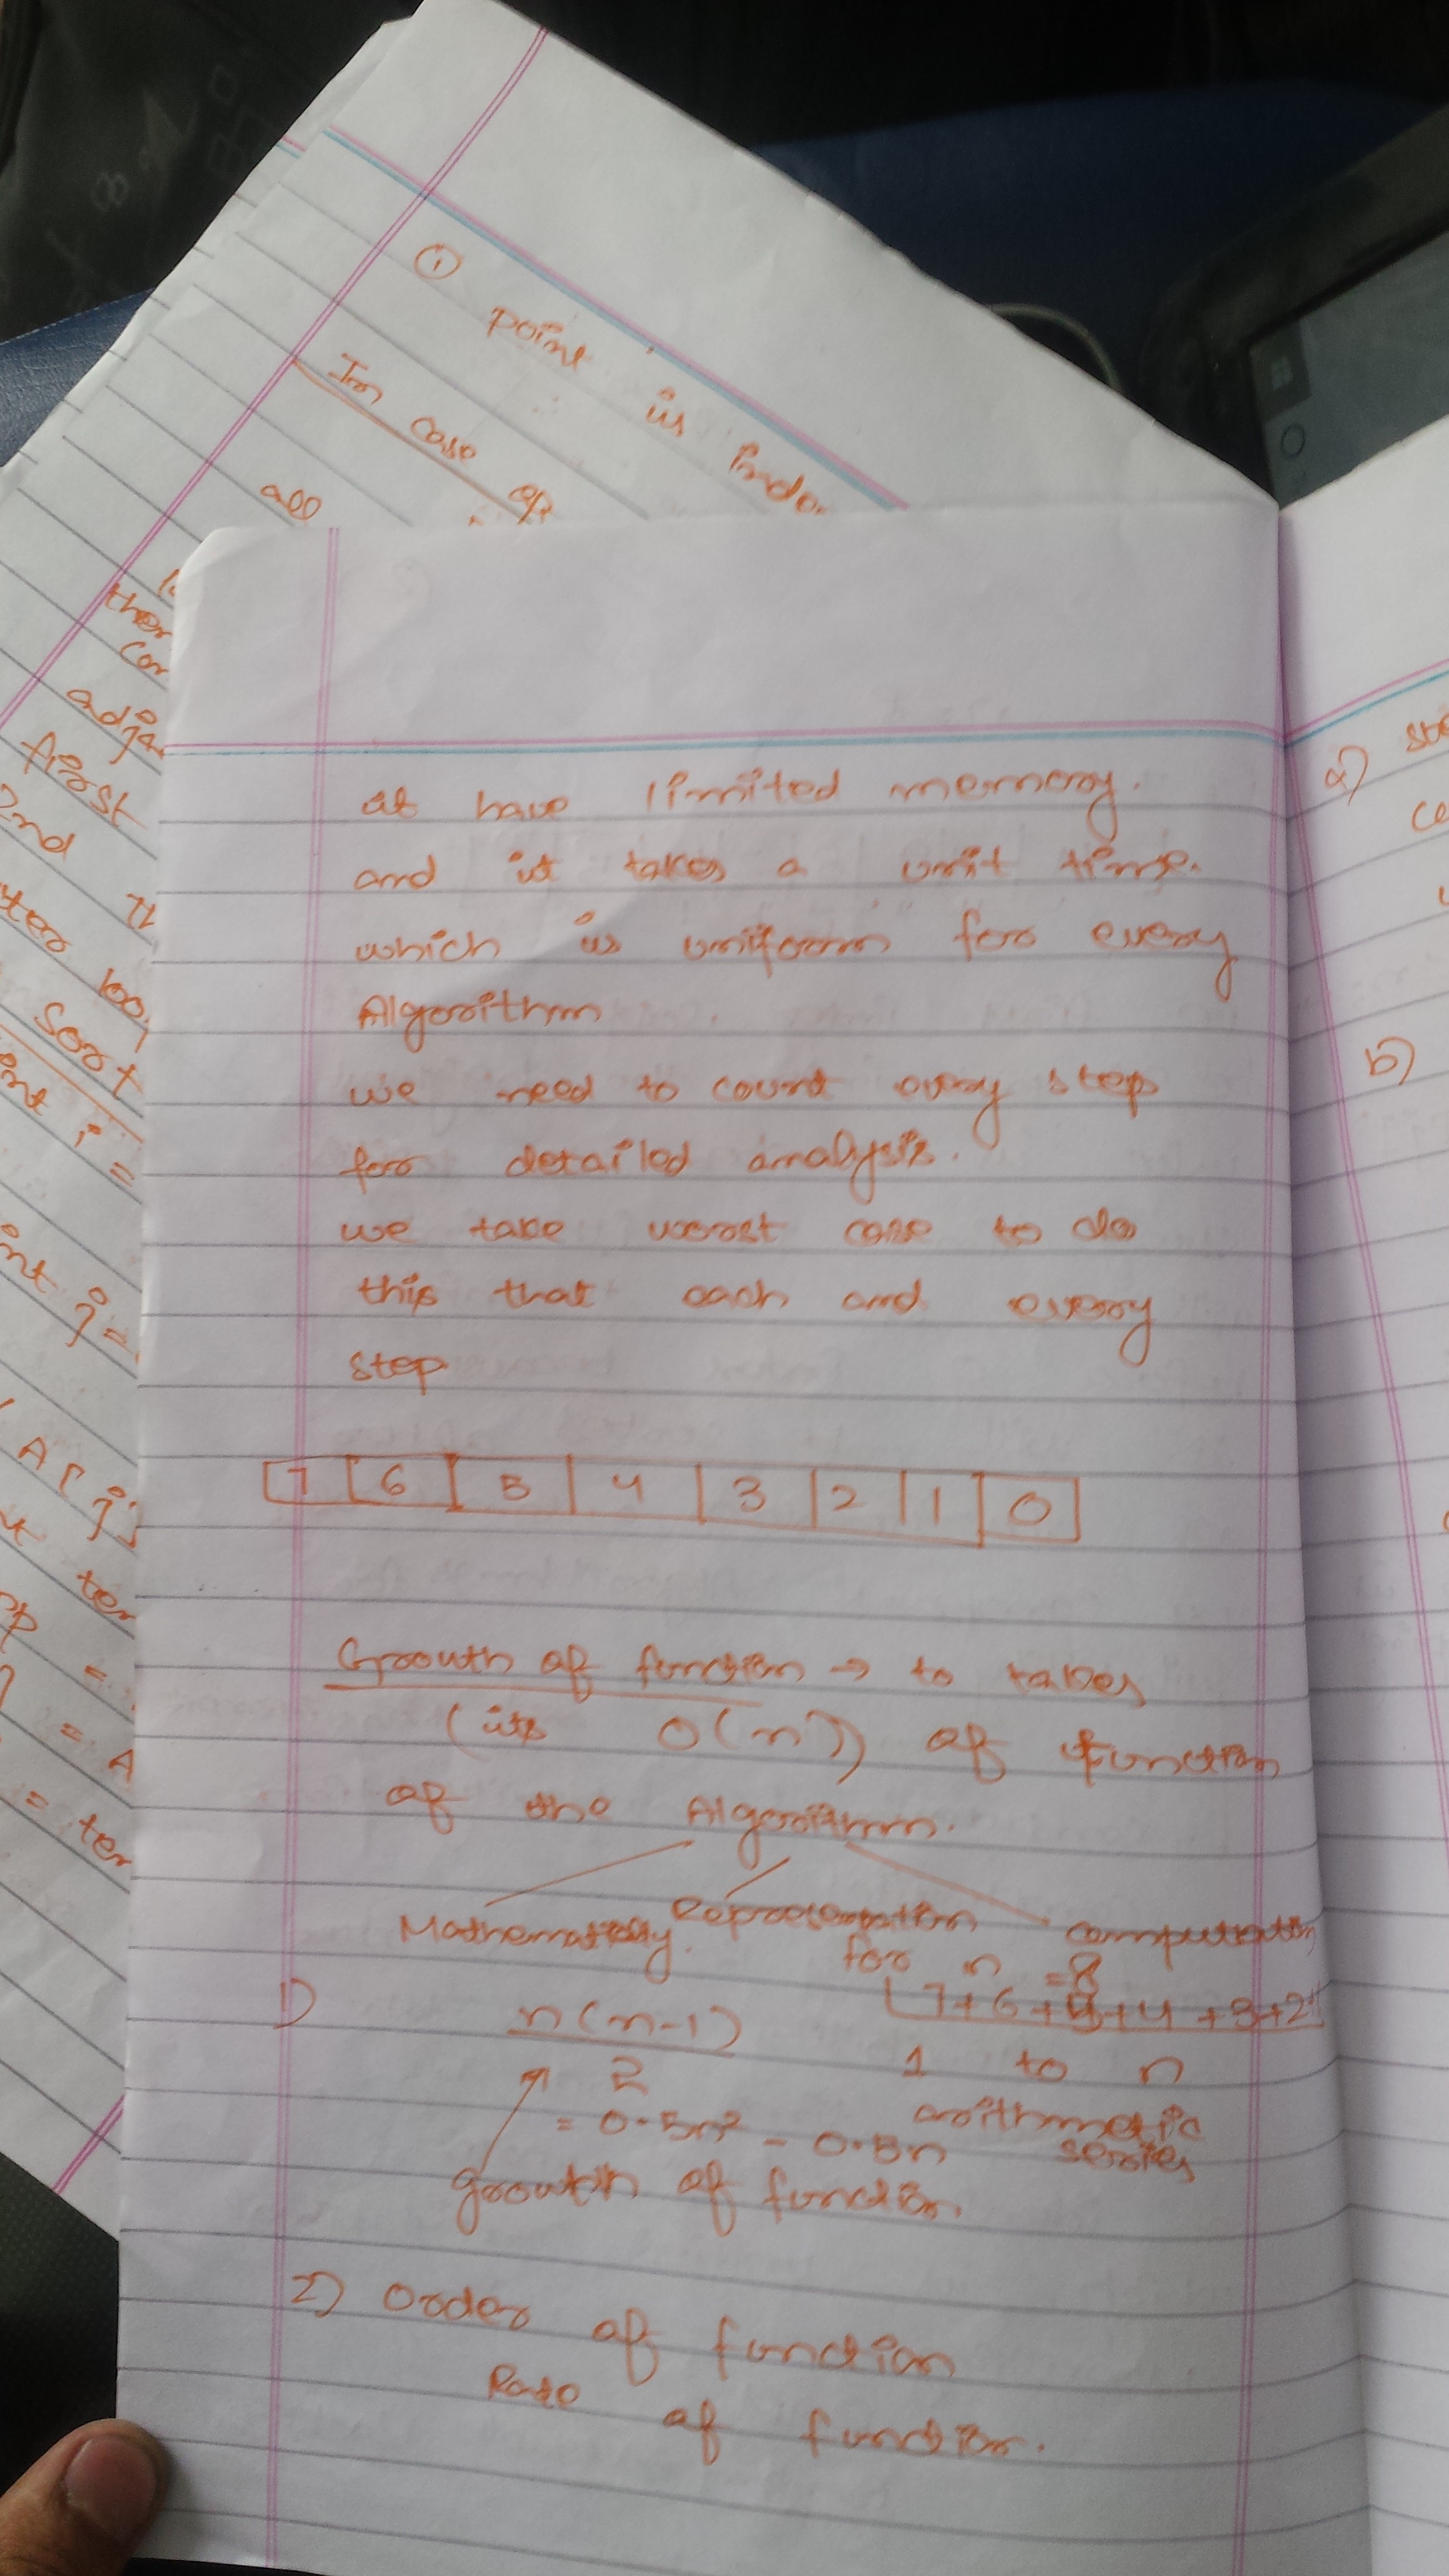 ① point is inde
In case of
all
ther
cor
adja
first
2nd Th
Sort
int i =
int j =
A[j]
ter
=
= A
= ter
it have limited memory.
and it takes a unit time.
which is uniform for every
Algorithm
we need to count every step
for detailed analysis.
we take worst case to do
this that each and every
step
7 6 5 4 3 2 1 0
Growth of function → to takes
(its O(n)) of function
of the Algorithm.
Mathematically. Representation computation
for n = 8
1) n(n-1) 7+6+5+4+3+2+1
2 1 to n
= 0.5n² - 0.5n arithmetic series
growth of function.
2) Order of function
Rate of function.
a) st
b)